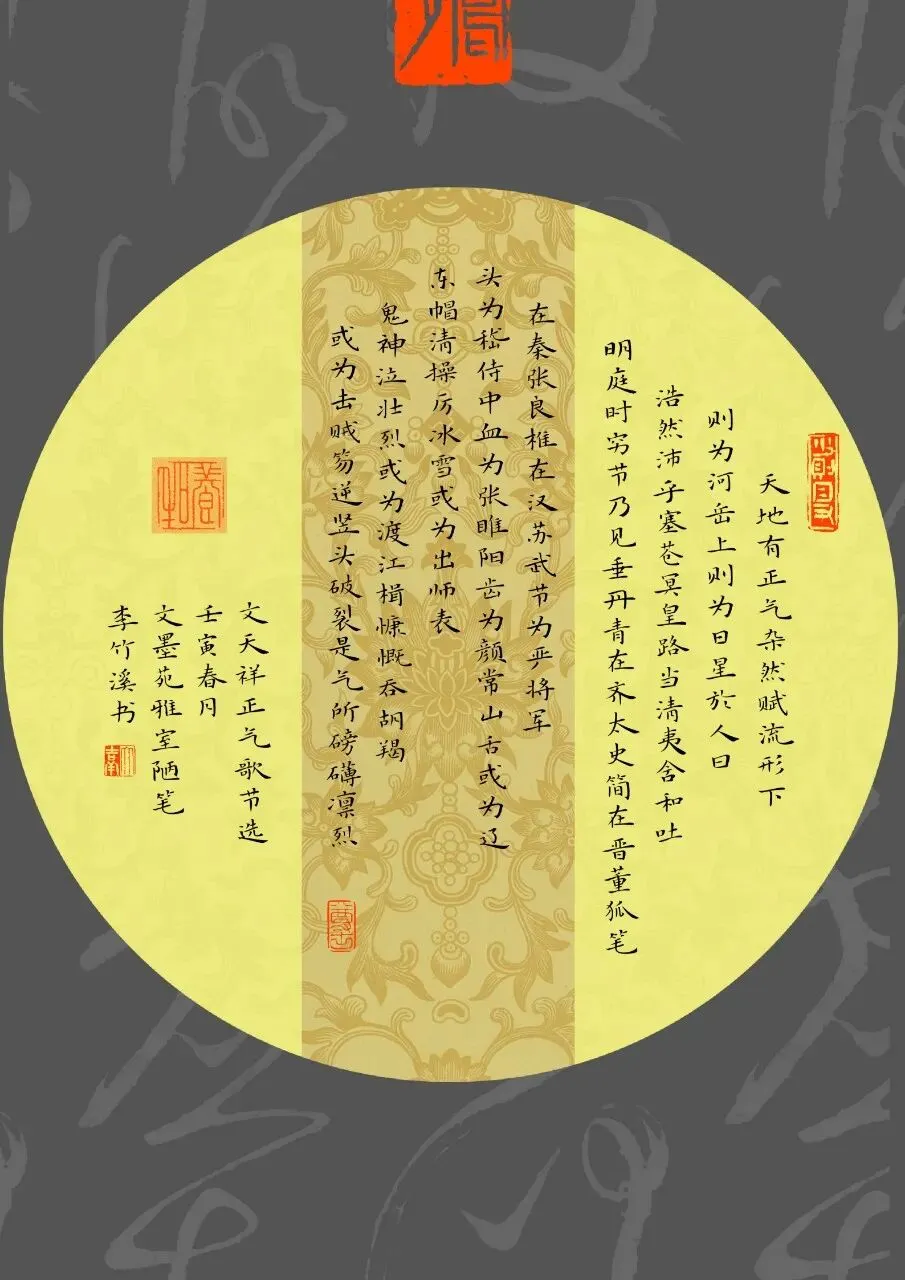 天地有正气杂然赋流形下
则为河岳上则为日星於人曰
浩然沛乎塞苍冥皇路当清夷含和吐
明庭时穷节乃见垂丹青在齐太史简在晋董狐笔
在秦张良椎在汉苏武节为严将军
头为嵇侍中血为张睢阳齿为颜常山舌或为辽
东帽清操厉冰雪或为出师表
鬼神泣壮烈或为渡江楫慷慨吞胡羯
或为击贼笏逆竖头破裂是气所磅礴凛烈
文天祥正气歌节选
壬寅春月
文墨苑雅室陋笔
李竹溪书